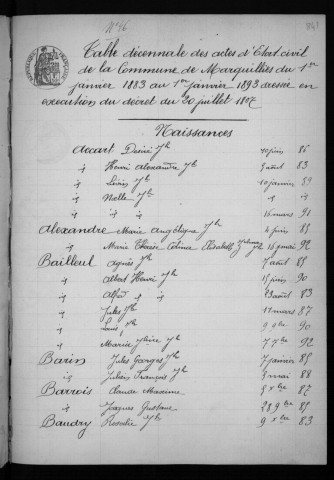 Nº 46
Table décennale des actes d'Etat-civil
de la Commune de Marquillies du 1er
janvier 1883 au 1er janvier 1893 dressée en
exécution du décret du 20 juillet 1807
Naissances
Accart Désiré Jh 10 juin 86
id Henri Alexandre Jh 5 août 83
id Jh 10 janvier
id Jh
id 16 mars 91
Alexandre Marie Angélique Jh 4 juin 85
id Marie Thérèse Elisabeth 16 mai 92
Bailleul Agnès Jh 7 août 85
id Albert Henri Jh 15 juin 90
id Alfred id id 23 août 83
id Jules Jh 11 mars 87
id Louis Jh 9 9bre 90
id Marie Jh 7 7bre 92
Barin Jules Georges Jh 7 janvier 85
id Julien François Jh mai 88
Barrois Claude Maxime 5 Xbre 87
id Jacques Gustave 28 9bre 85
Baudry Rosalie Jh 9 Xbre 83